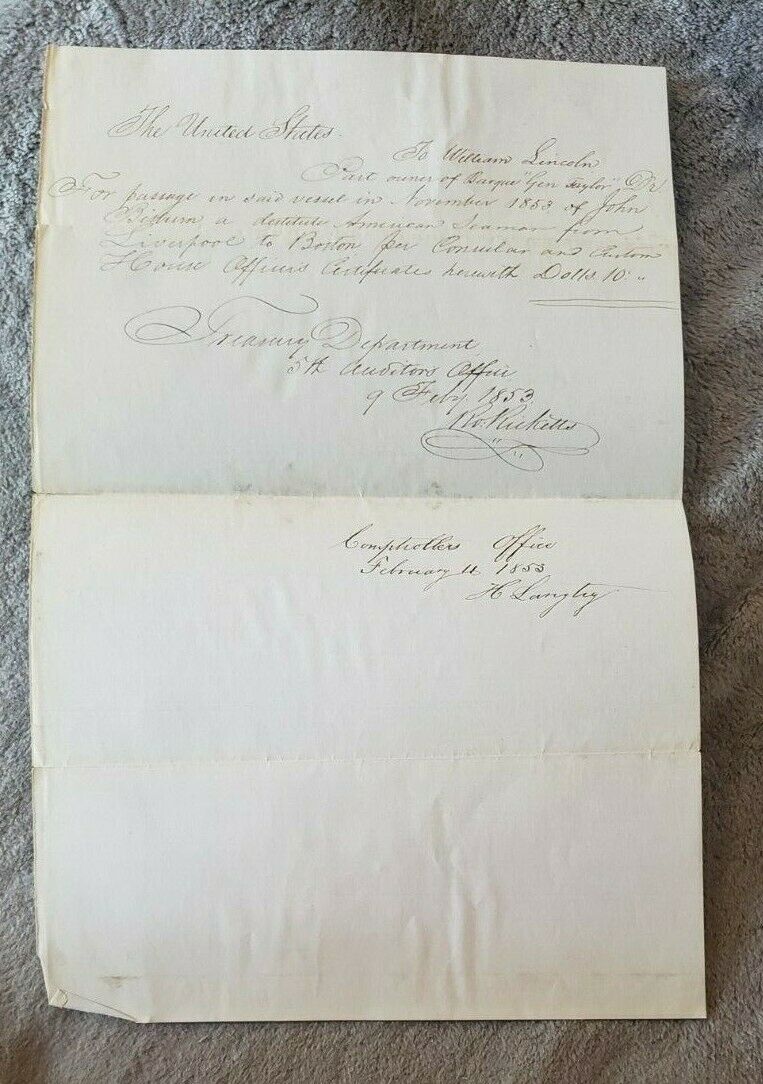 The United States.
To William Lincoln
Part owner of Barque "Gen Taylor" Dr.
For passage in said vessel in November 1853 of John
a destitute American Seaman from
Liverpool to Boston per Consular and Custom
House Officers Certificates herewith Dolls. 10 "
Treasury Department
5th Auditors Office
9 Feby 1853
Ro. Ricketts
Comptrollers Office
February 11 1853
H Langtry